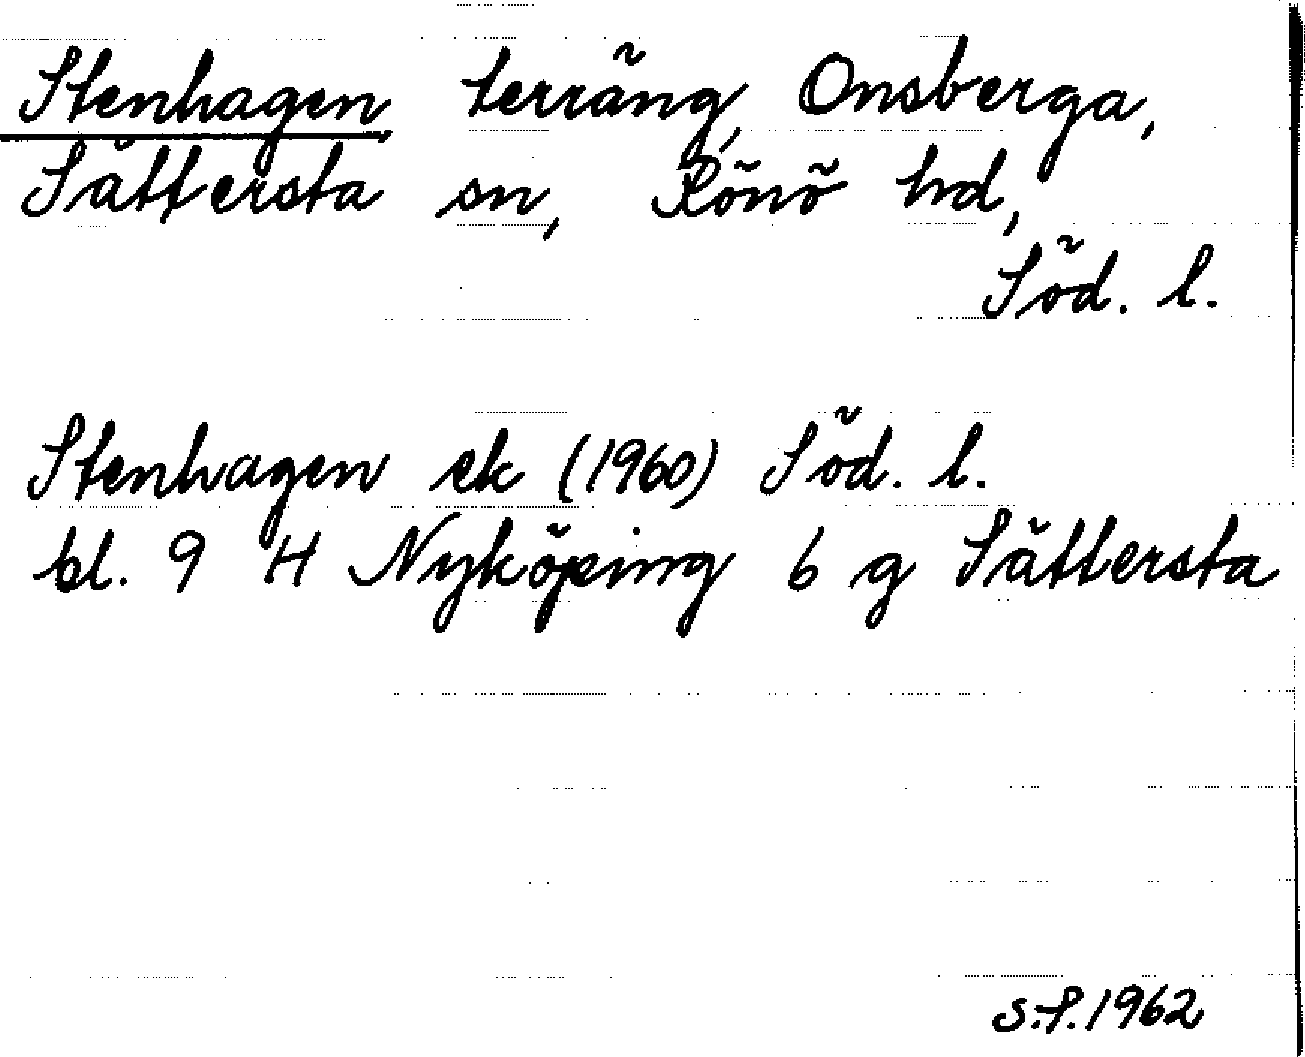 Stenhagen, terräng, Onsberga,
Sättersta sn, Rönö hd,
Söd. l.
Stenhagen ek (1960) Söd. l.
bl. 9 H Nyköping 6 g Sättersta
S.f. 1962